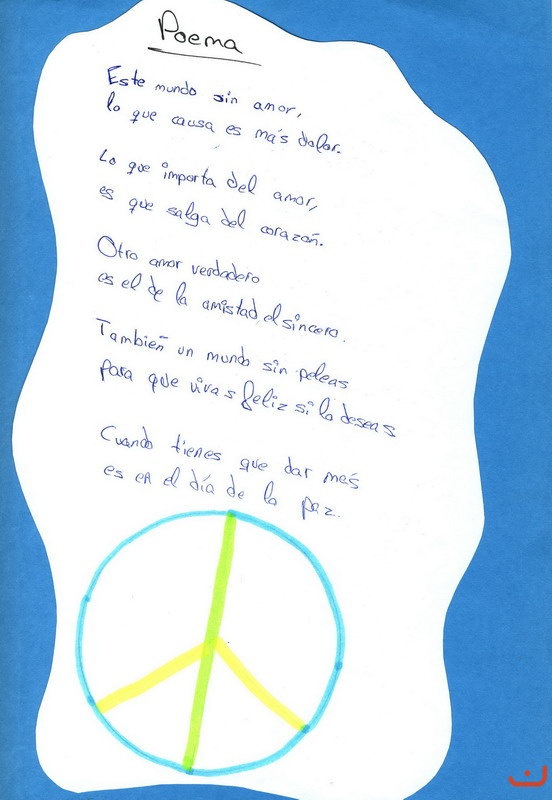 Poema
Este mundo sin amor,
lo que causa es más dolor.
Lo que importa del amor,
es que salga del corazón.
Otro amor verdadero
es el de la amistad el sincero.
También un mundo sin peleas
para que vivas feliz si lo deseas
Cuando tienes que dar más
es en el día de la paz.